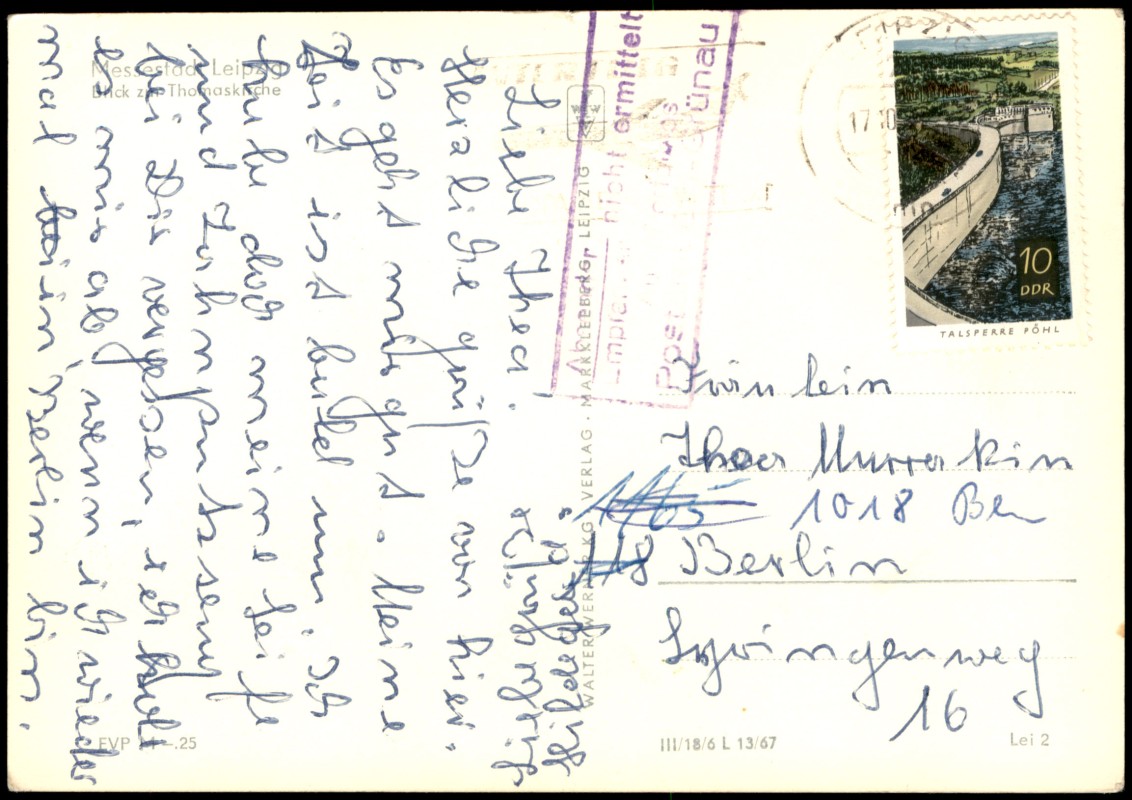 Messestadt Leipzig
Blick zur Thomaskirche
Liebe Thea!
Herzliche grüße von hier.
Es geht mir gut. Meine
Zeit ist bald um. Ich
habe doch meine Seife
und Zahnputzseug
bei Dir vergessen, ich hole
es mir ab, wenn ich wieder
mal in Berlin bin.
Hildegard
EVP –.25
WALTER WERNER KG VERLAG · MARKKLEEBERG, LEIPZIG
Empfänger nicht ermittelt
Post Grünau
LEIPZIG
17.10
10
DDR
TALSPERRE PÖHL
Fräulein
Thea Murrakin
1018 Ber
Berlin
Syringenweg
16
III/18/6 L 13/67
Lei 2